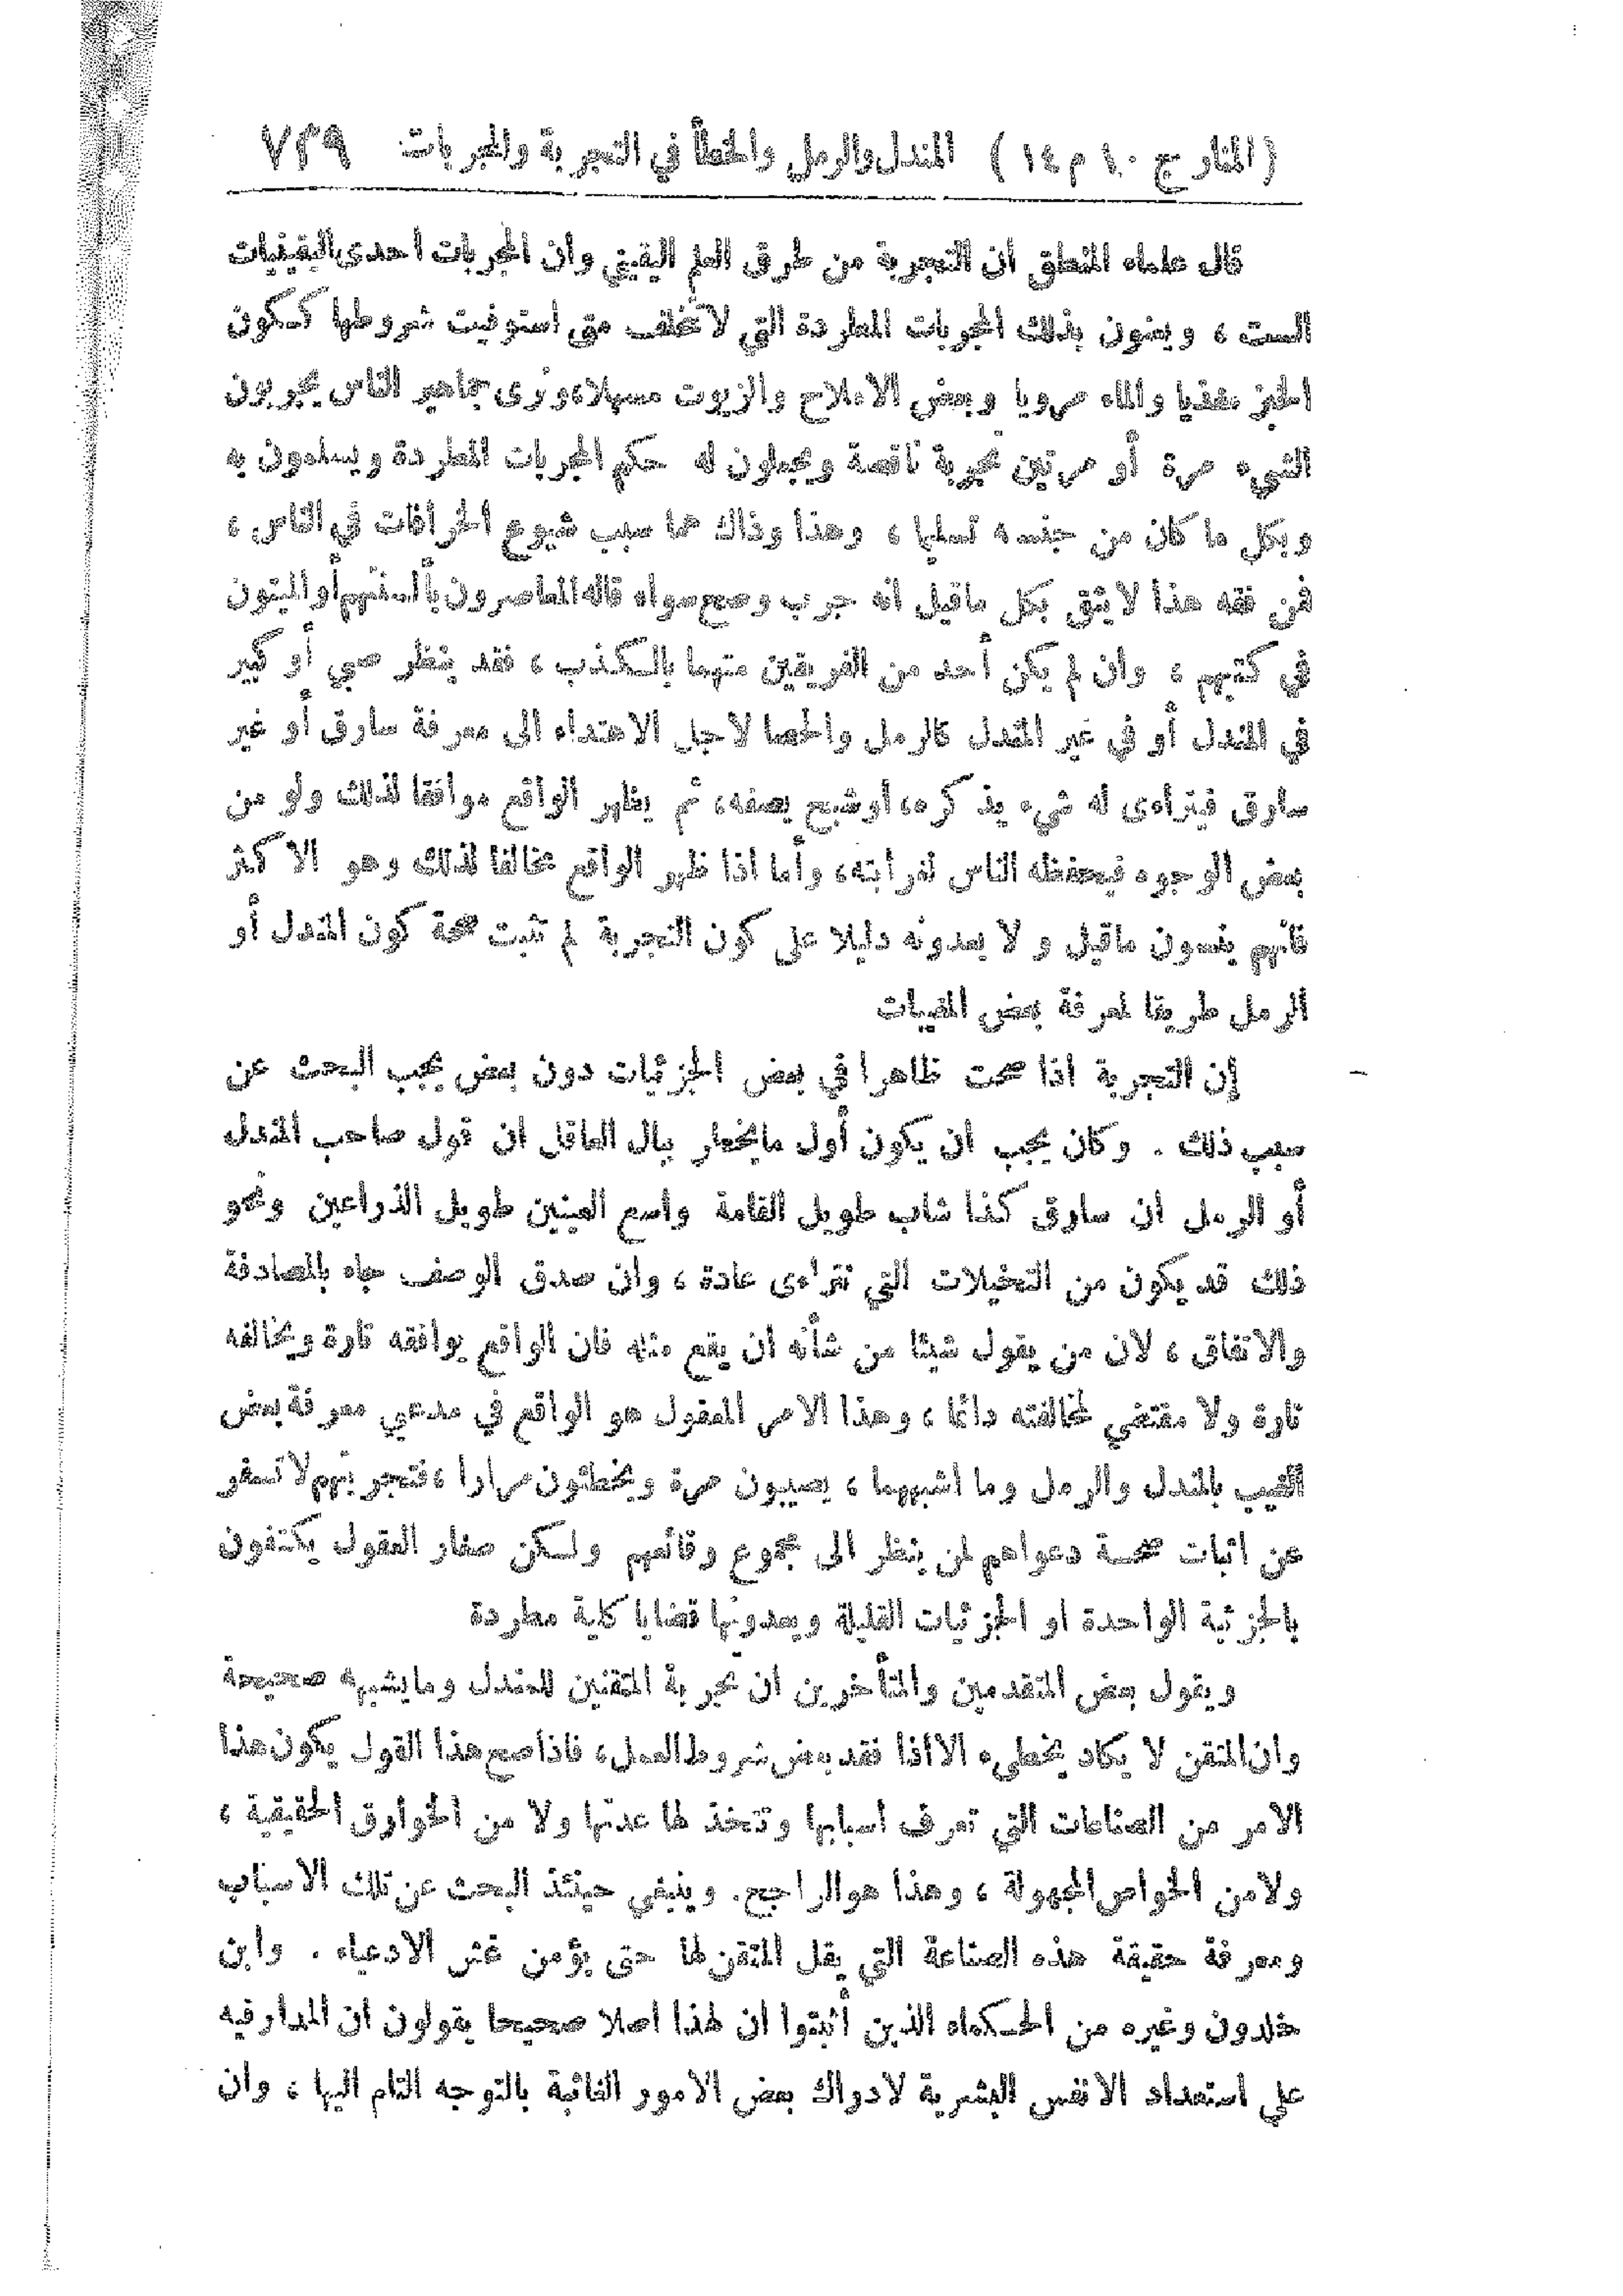 (المنار ج ١٠ م ١٤) المندل والرمل والخطأ في التجربة والمجربات ٧٣٩
قال علماء المنطق ان التجربة من طرق العلم اليقيني وان المجربات احدى اليقينيات
الست ، ويعنون بذلك المجربات المطردة التي لا تتخلف متى استوفيت شروطها ككون
الخبز مغذيا والماء مرويا وبعض الاملاح والزيوت مسهلا، ونرى جماهير الناس يجربون
الشيء مرة أو مرتين تجربة ناقصة ويجعلون له حكم المجربات المطردة ويسلمون به
وبكل ما كان من جنسه تسليما ، وهذا وذاك مما سبب شيوع الخرافات في الناس ،
فمن فقه هذا لا يثق بكل ماقيل انه جرب وصح سواء قاله المعاصرون بألسنتهم أو الميتون
في كتبهم ، وان لم يكن أحد من الفريقين متهما بالكذب ، فقد ينظر صبي أو كبير
في المندل أو في غير المندل كالرمل والحصا لاجل الاهتداء الى معرفة سارق أو غير
سارق فيتراءى له شيء يذكره، او شبح يصفه، ثم يظهر الواقع موافقا لذلك ولو من
بعض الوجوه فيحفظه الناس لغرابته، وأما اذا ظهر الواقع مخالفا لذلك وهو الاكثر
فانهم ينسون ماقيل ولا يعدونه دليلا على كون التجربة لم تثبت صحة كون المندل أو
الرمل طريقا لمعرفة بعض المغيبات
إن التجربة اذا صحت ظاهرا في بعض الجزئيات دون بعض يجب البحث عن
سبب ذلك . وكان يجب ان يكون أول مايخطر ببال العاقل ان قول صاحب المندل
أو الرمل ان سارق كذا شاب طويل القامة واسع العينين طويل الذراعين ونحو
ذلك قد يكون من التخيلات التي تتراءى عادة ، وان صدق الوصف جاء بالمصادفة
والاتفاق ، لان من يقول شيئا من شأنه ان يقع مثله فان الواقع يوافقه تارة ويخالفه
تارة ولا مقتضي لمخالفته دائما ، وهذا الامر المعقول هو الواقع في مدعي معرفة بعض
الغيب بالمندل والرمل وما اشبههما ، يصيبون مرة ويخطئون مرارا ، فتجربتهم لا تسفر
عن اثبات صحة دعواهم لمن ينظر الى مجموع وقائعهم ولكن صغار العقول يكتفون
بالجزئية الواحدة او الجزئيات القليلة ويعدونها قضايا كلية مطردة
ويقول بعض المتقدمين والمتأخرين ان تجربة المتقنين للمندل ومايشبهه صحيحة
وان المتقن لا يكاد يخطىء الا اذا فقد بعض شروط العمل، فاذا صح هذا القول يكون هذا
الامر من الصناعات التي تعرف اسبابها وتتخذ لها عدتها ولا من الخوارق الحقيقية ،
ولا من الخواص المجهولة ، وهذا هو الراجح. وينبغي حينئذ البحث عن تلك الاسباب
ومعرفة حقيقة هذه الصناعة التي يقل المتقن لها حتى يؤمن غش الادعياء . وابن
خلدون وغيره من الحكماء الذين أثبتوا ان لهذا اصلا صحيحا يقولون ان المدار فيه
على استعداد الانفس البشرية لادراك بعض الامور الغائبة بالتوجه التام اليها ، وان